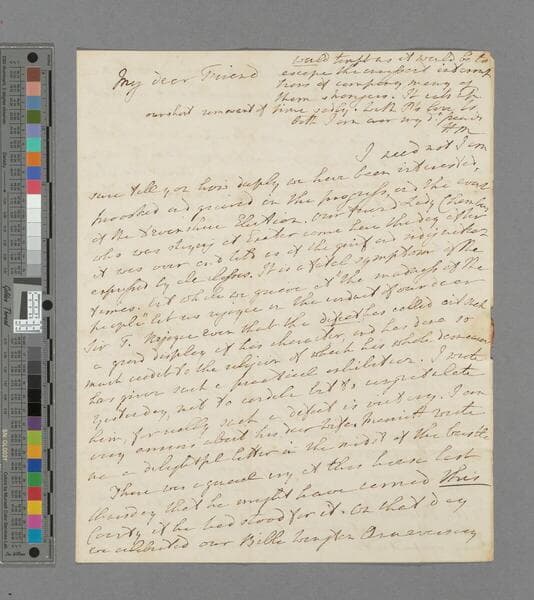 would tempt us it would be to
My dear Friend escape the incessant interrup
tions of company many of
them strangers. It is
overshort removed of
both I am ever my dr friend
HM
I need not I am
sure tell you how deeply we have been interested,
provoked and grieved in the progress and the event
of the Devonshire Election. Our friend Lady
who was staying at Exeter came here the day after
it was over and told us of the grief and indignation
expressed by all classes. It is a fatal symptom of the
times. But while we grieve at the madness of the
people" let us rejoice in the conduct of our dear
Sir T. Rejoice even that the defeat has called out such
a good display of his character, and has done so
much credit to the religion of which his whole demeanour
has given such a practical exhibition. I wrote
yesterday, not to condole but to congratulate
him, for really such a defeat is victory. I am
very anxious about his dear Wife. Marriott wrote
me a delightful letter in the midst of the bustle
There was a general cry at this house last
thursday that he might have carried this
County if he had stood for it. On that day
we celebrated our Bible Anniversary